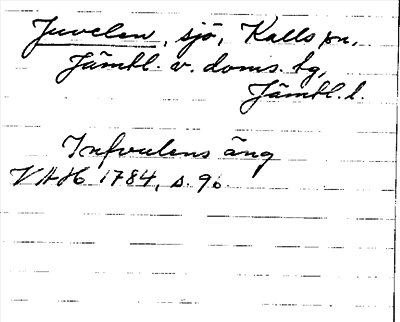 Juvelen, sjö, Kalls sn,
Jämtl. v. doms. tg,
Jämtl. l.
äng
VAH 1784, s. 96